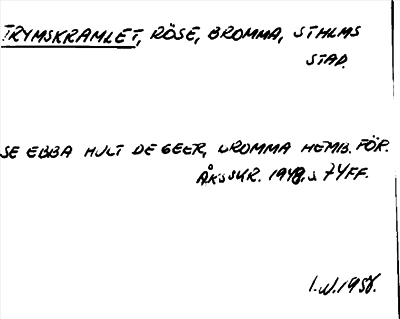 TRYMSKRAMLET, RÖSE, BROMMA, STHLMS
STAD.
SE EBBA HULT DE GEER, BROMMA HEMB. FÖR.
ÅRSSKR. 1948, S 74FF.
I.W. 195